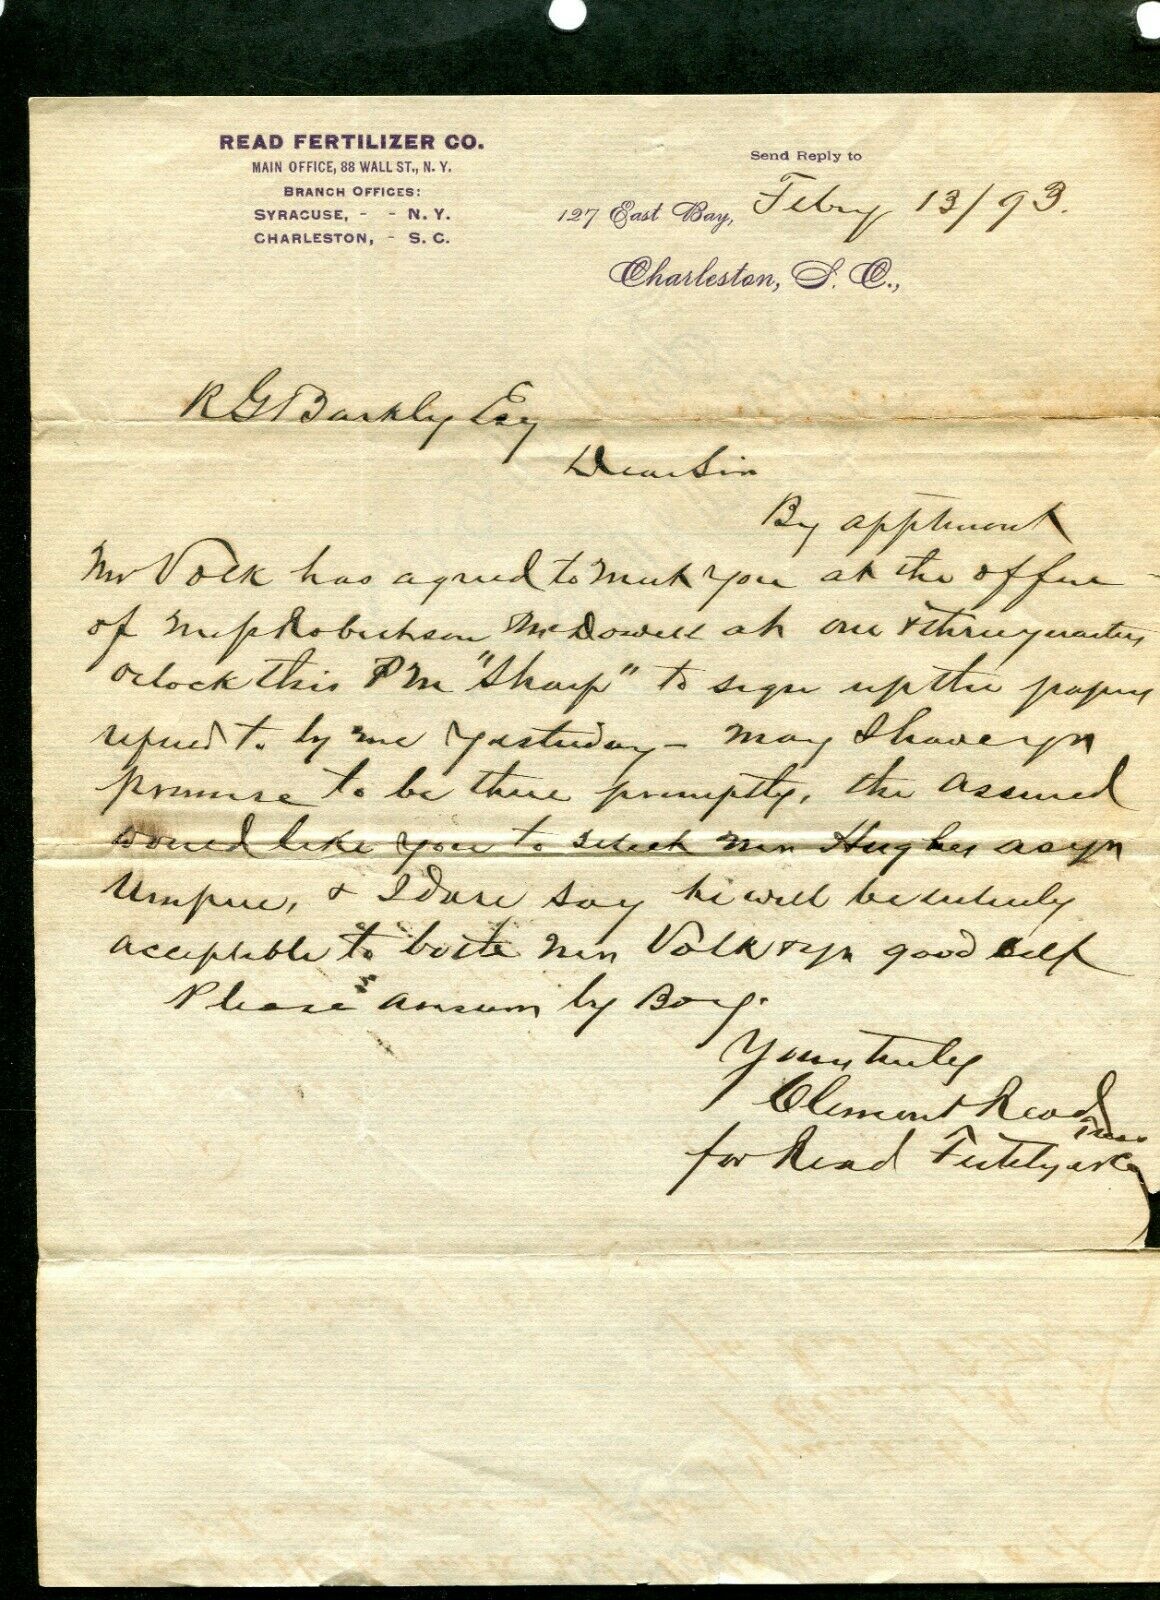 READ FERTILIZER CO.
MAIN OFFICE, 88 WALL ST., N. Y.
BRANCH OFFICES:
SYRACUSE, - - N. Y.
CHARLESTON, - S. C.
Send Reply to
127 East Bay, Febry 13/93.
Charleston, S. C.,
R G Barkly Esq
Dear Sir
By apptment
Mr Volk has agreed to meet you at the office
of Robertson McDowell at one & three quarters
oclock this PM "Sharp" to sign up the papers
refered to by me yesterday - may I have yr
promise to be there promptly, the assured
would like you to select Mr Hughes as yr
Umpire, & I dare say he will be entirely
acceptable to both Mr Volk & yr good self
Please answer by Boy.
Yours truly
Clement Read
Treas
for Read Fertilizer Co